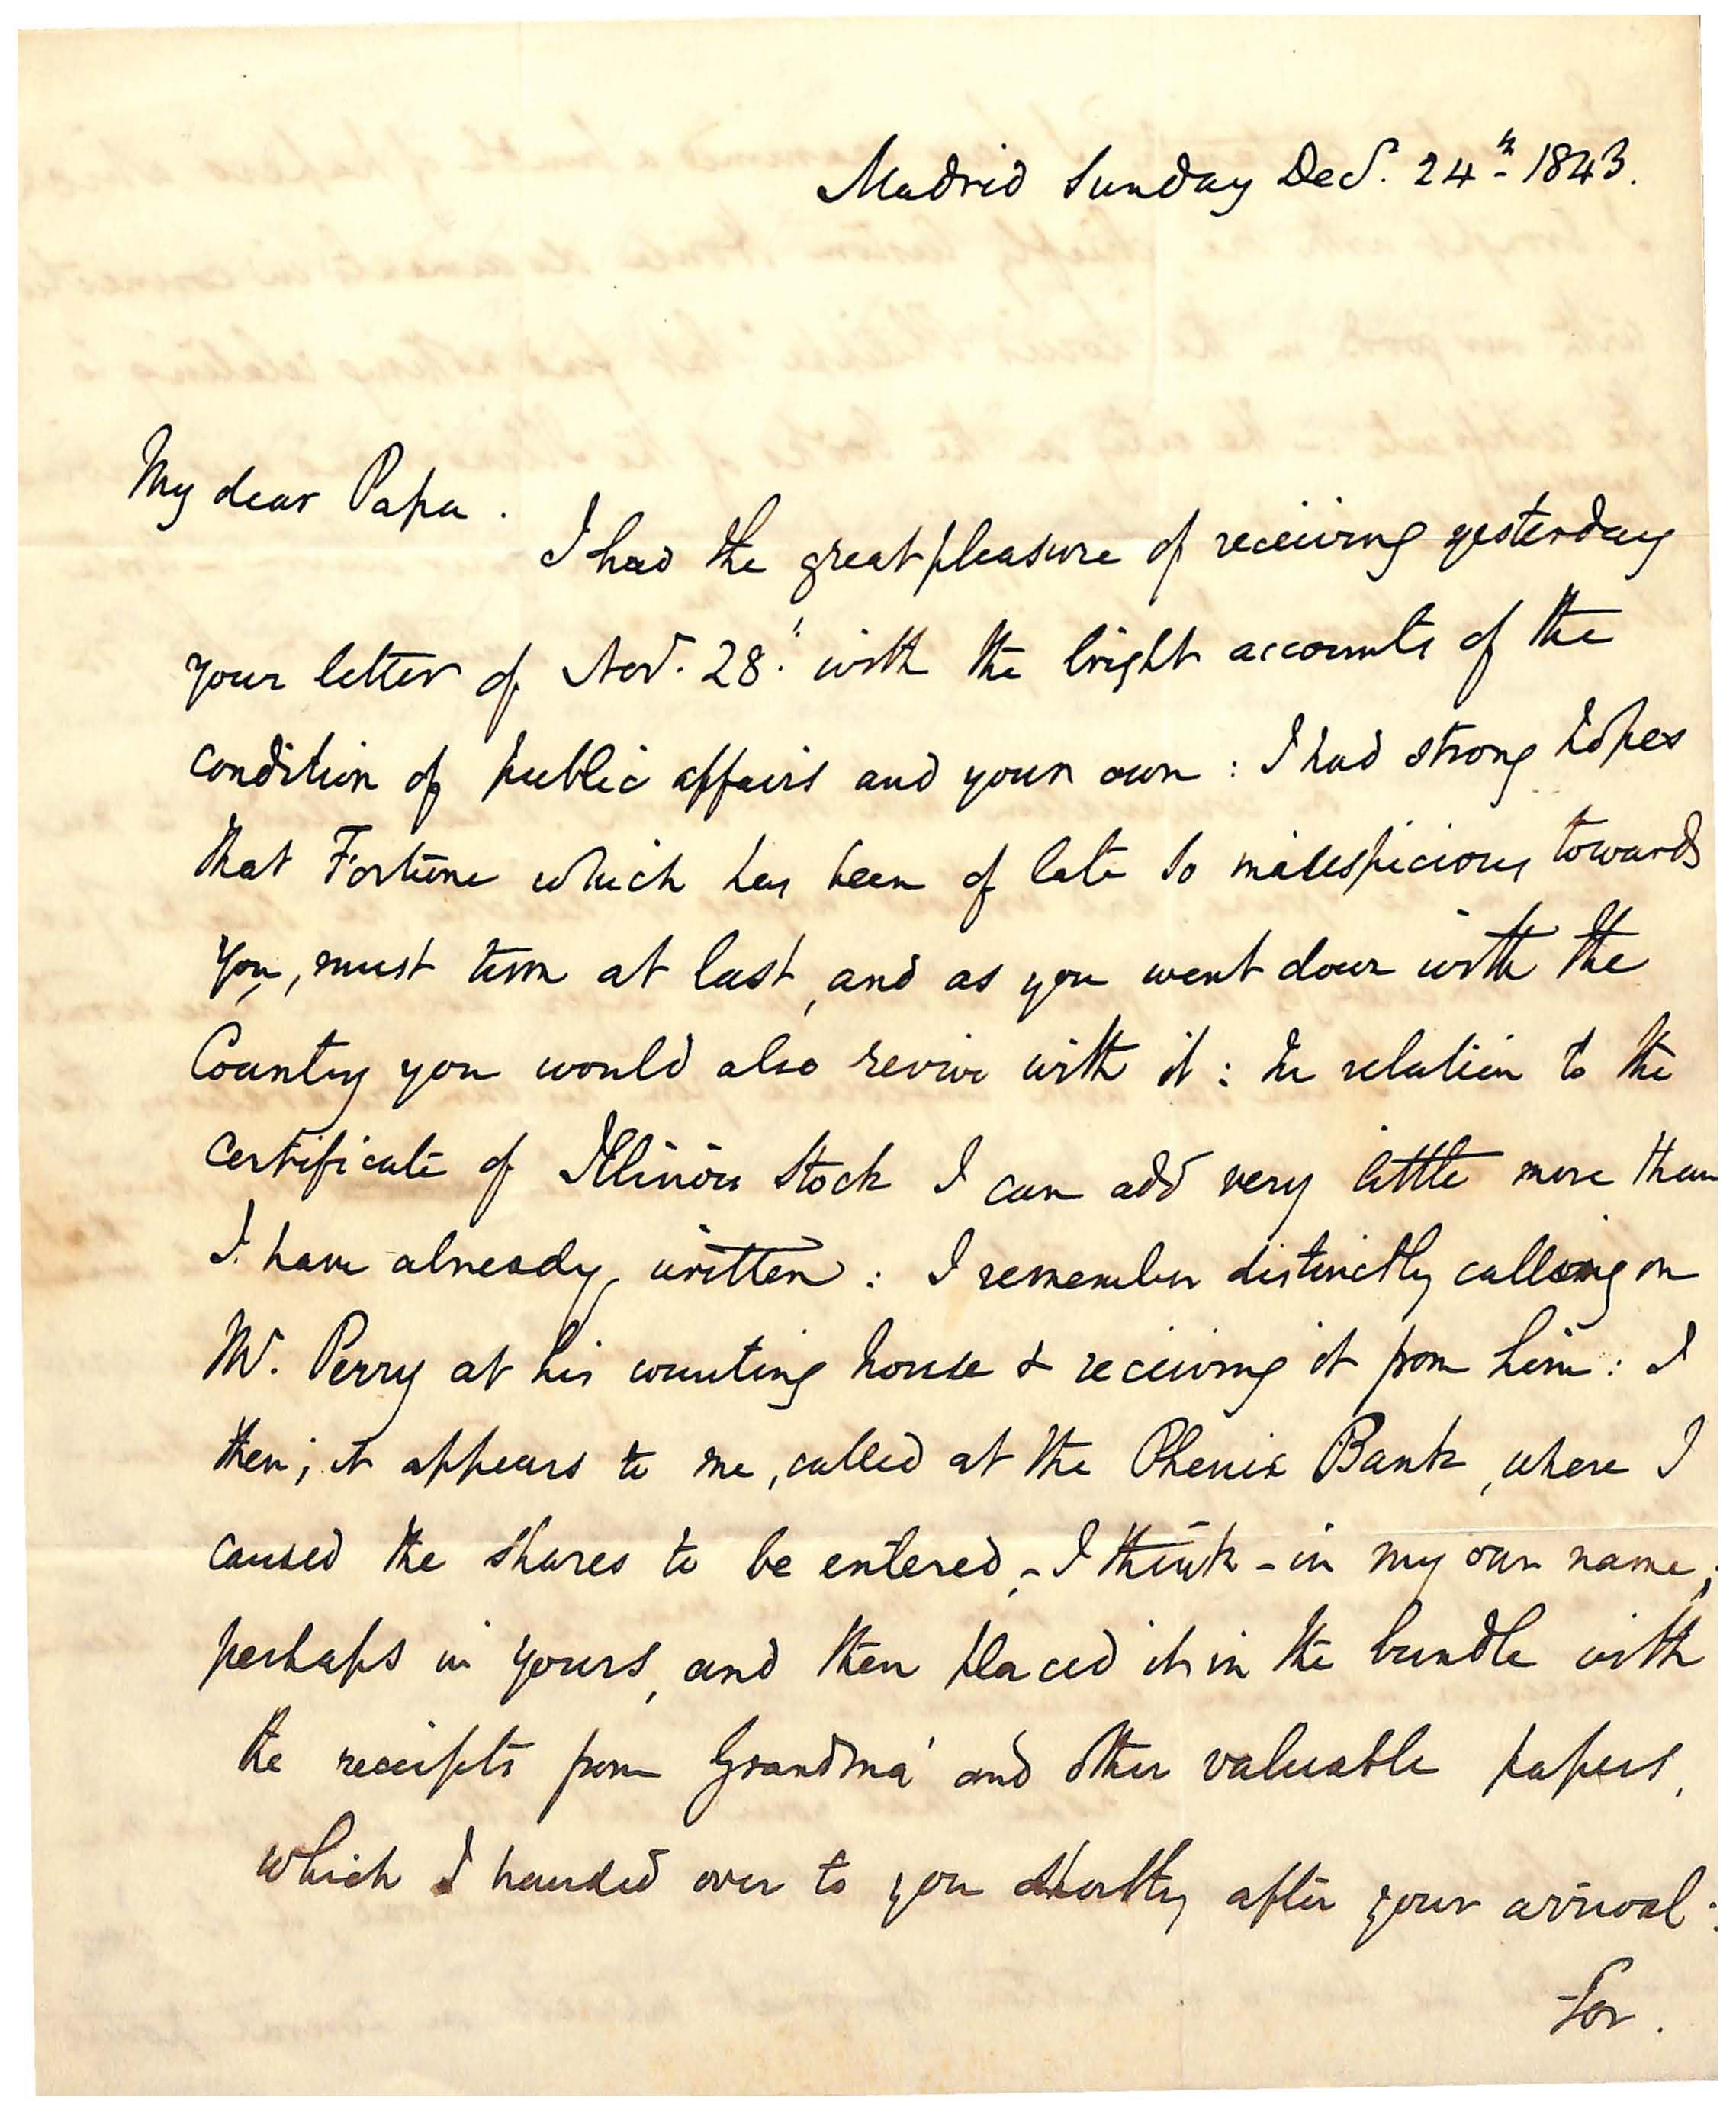 Madrid Sunday Dec<sup>r</sup>. 24<sup>th</sup> 1843.
My dear Papa.
I had the great pleasure of receiving yesterday
your letter of Nov<sup>r</sup>. 28. with the bright accounts of the
condition of public affairs and your own : I had strong hopes
that Fortune which has been of late so towards
you, must turn at last, and as you went down with the
Country you would also revive with it : In relation to the
certificate of Illinois Stock I can add very little more than
I have already written : I remember distinctly calling on
M<sup>r</sup>. Perry at his counting house & receiving it from him : I
then; it appears to me, called at the Phenix Bank, where I
caused the shares to be entered, - I think - in my own name,
perhaps in yours, and then placed it in the bundle with
the receipts from Grandma and other valuable papers,
which I handed over to you shortly after your arrival :
for.